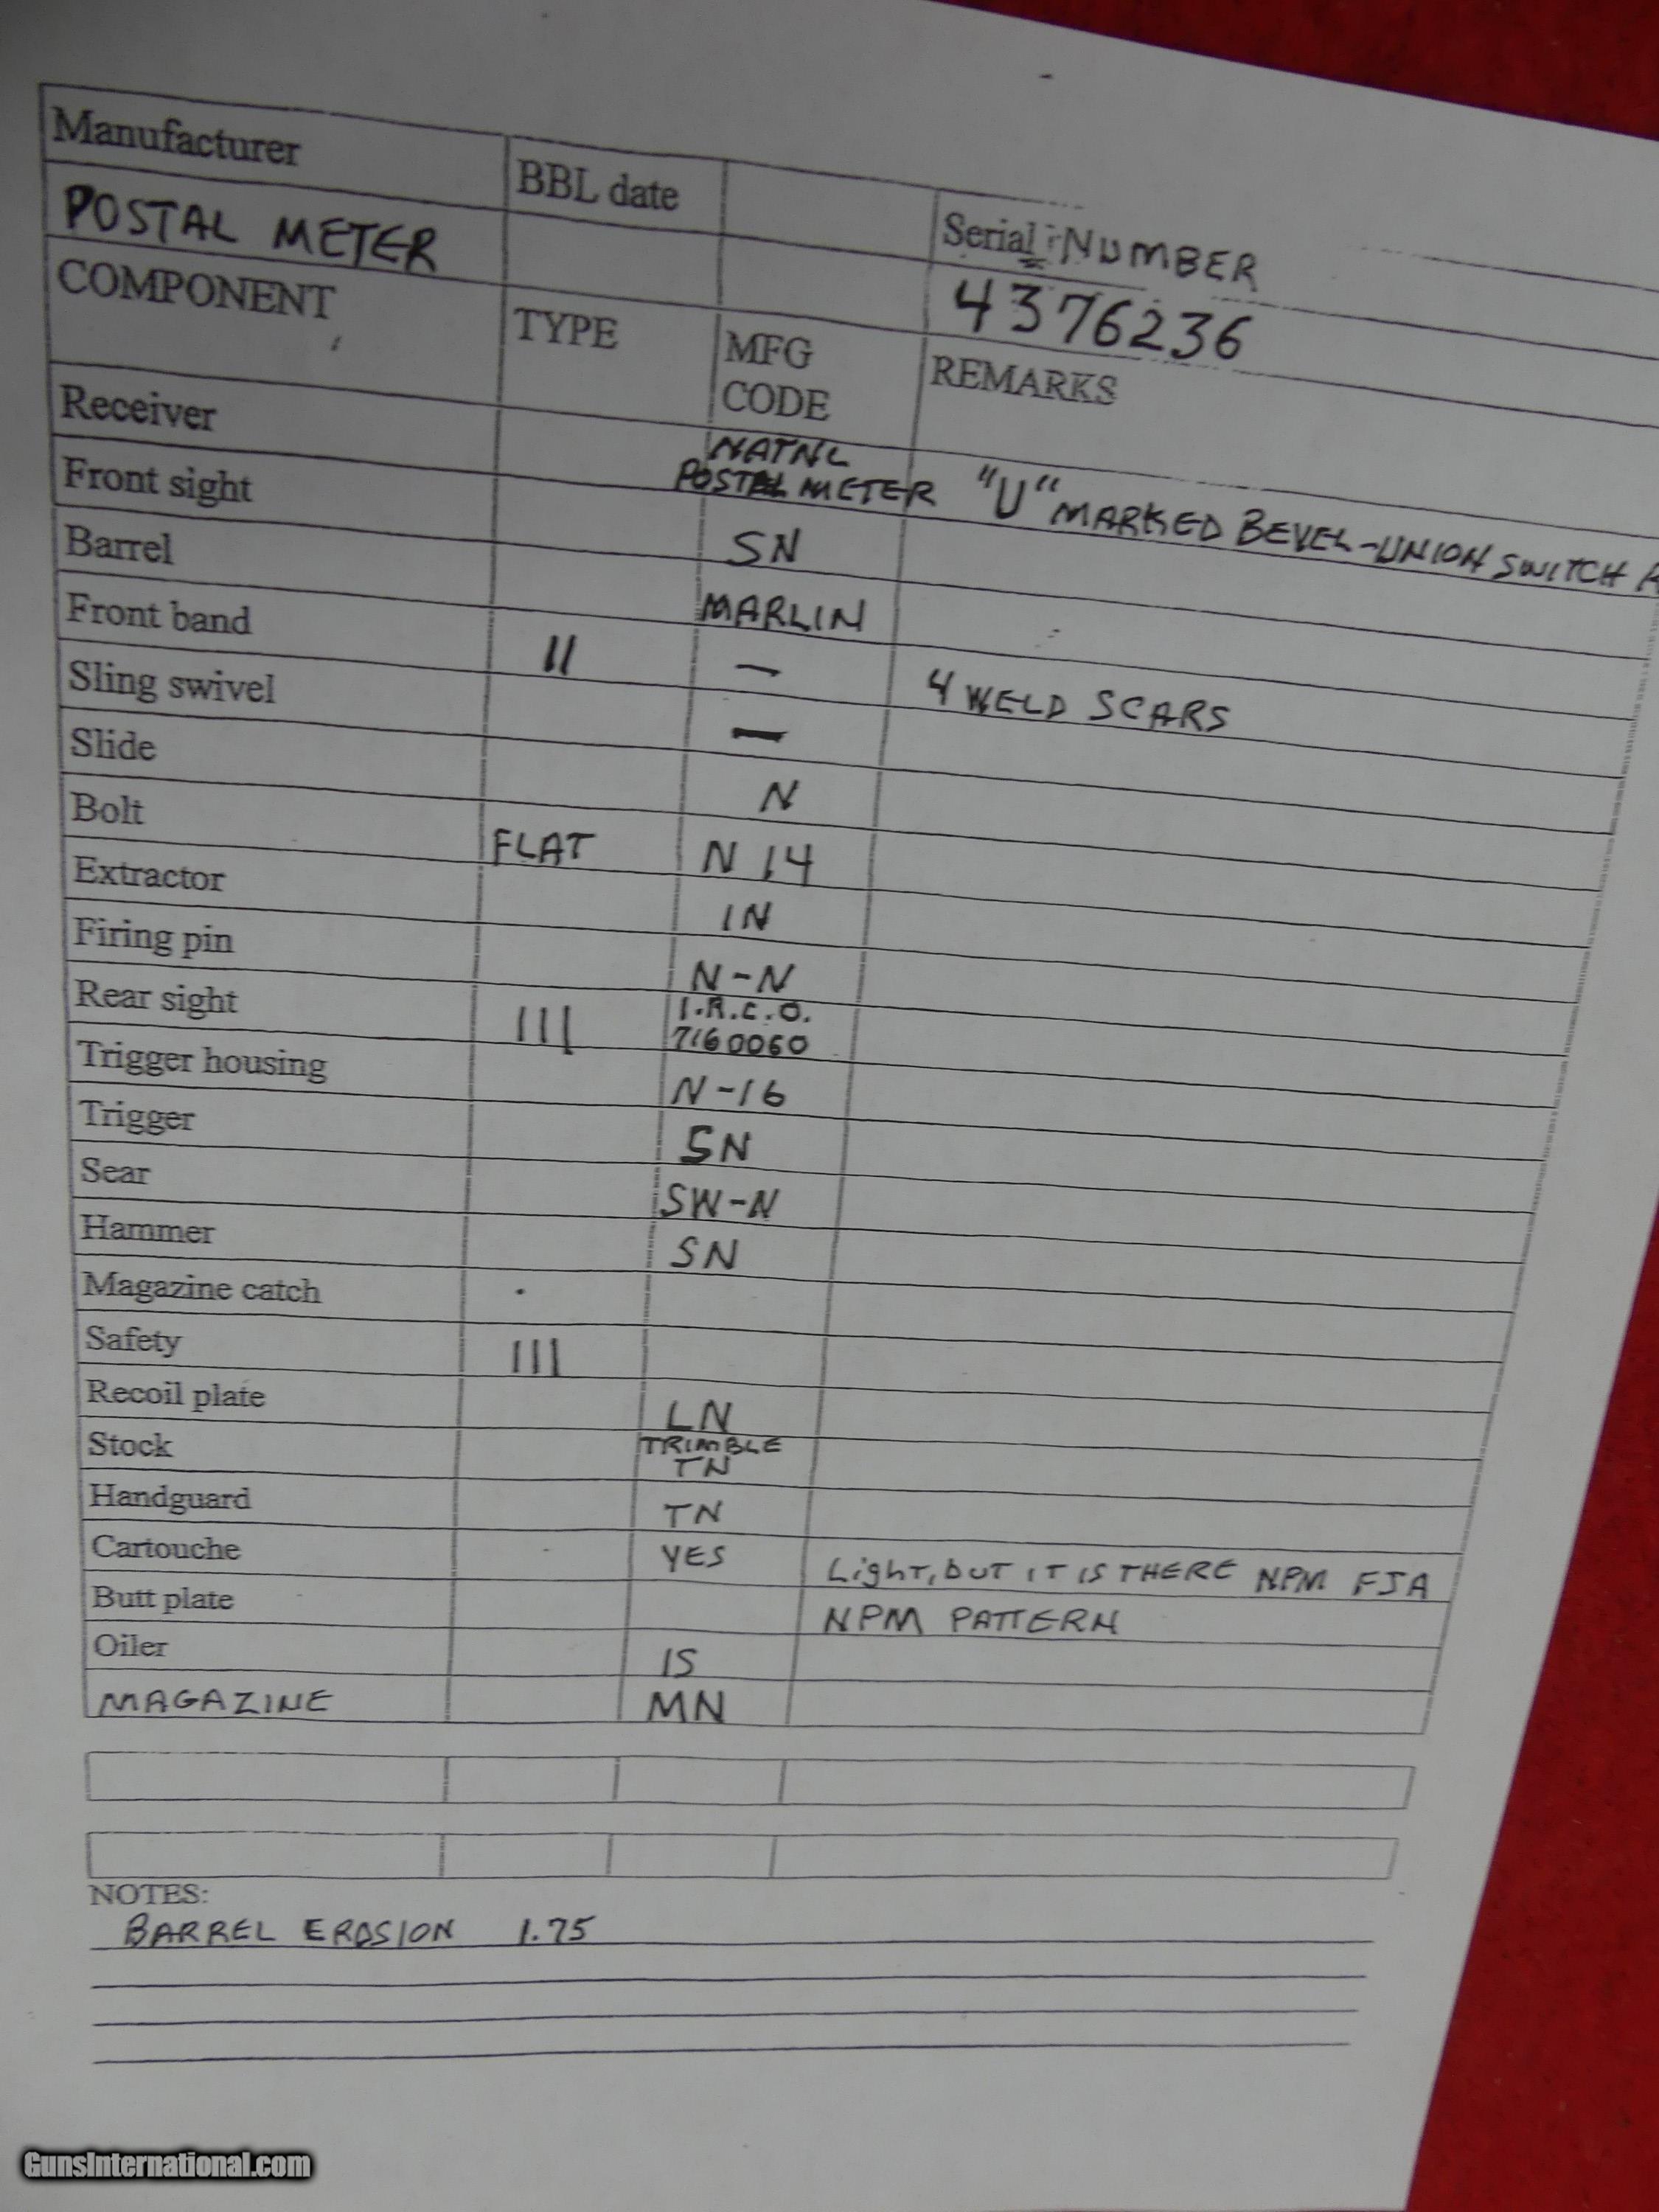 Manufacturer BBL date Serial NUMBER
POSTAL METER 4376236
COMPONENT TYPE MFG CODE REMARKS
Receiver NATNL POSTAL METER "U" MARKED BEVEL-UNION SWITCH
Front sight SN
Barrel MARLIN
Front band II — 4 WELD SCARS
Sling swivel —
Slide N
Bolt FLAT N 14
Extractor IN
Firing pin N-N
Rear sight III I.R.C.O. 7160060
Trigger housing N-16
Trigger SN
Sear SW-N
Hammer SN
Magazine catch
Safety III
Recoil plate LN
Stock TRIMBLE TN
Handguard TN
Cartouche YES LigHT, bUT IT IS THERE NPM FJA
Butt plate NPM PATTERN
Oiler IS
MAGAZINE MN
NOTES:
BARREL EROSION 1.75
GunsInternational.com